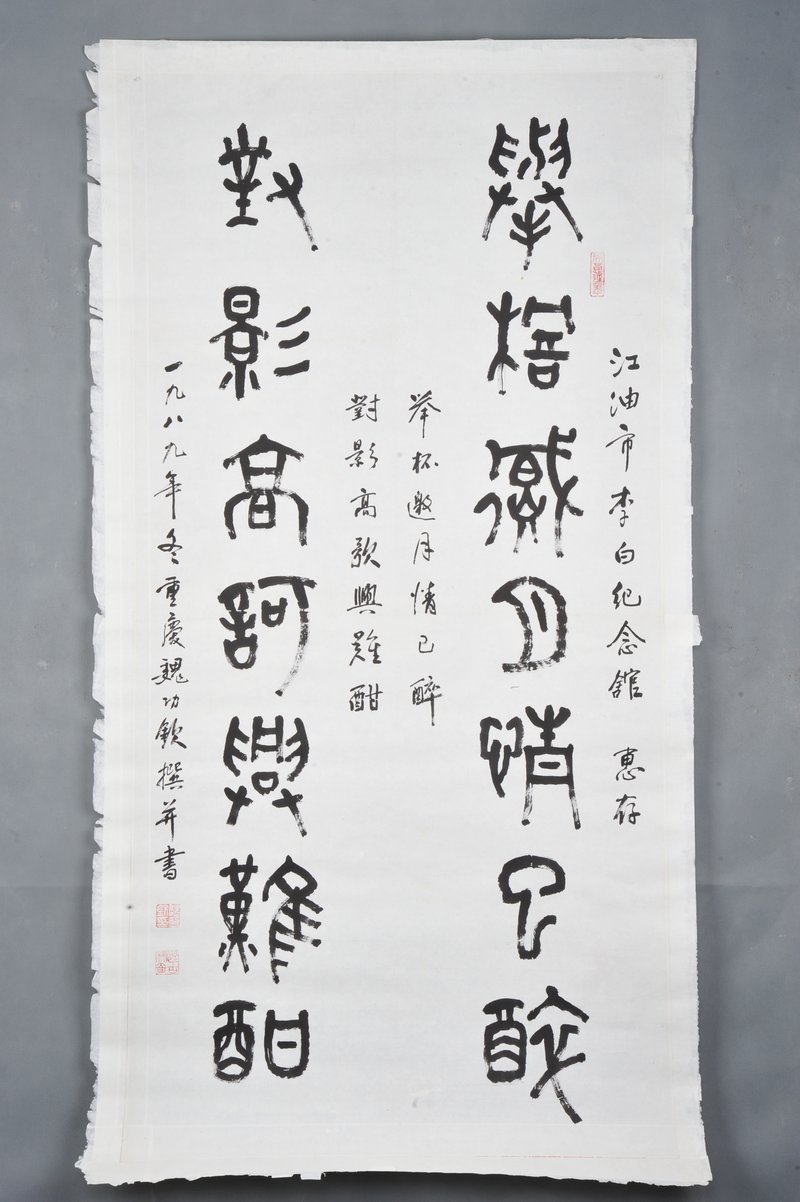 江油市李白纪念館　惠存
舉桮邀月情已醉
举杯邀月情已醉
對影高歌興難酣
對影高訶興難酣
一九八九年冬重慶魏功欽撰并書